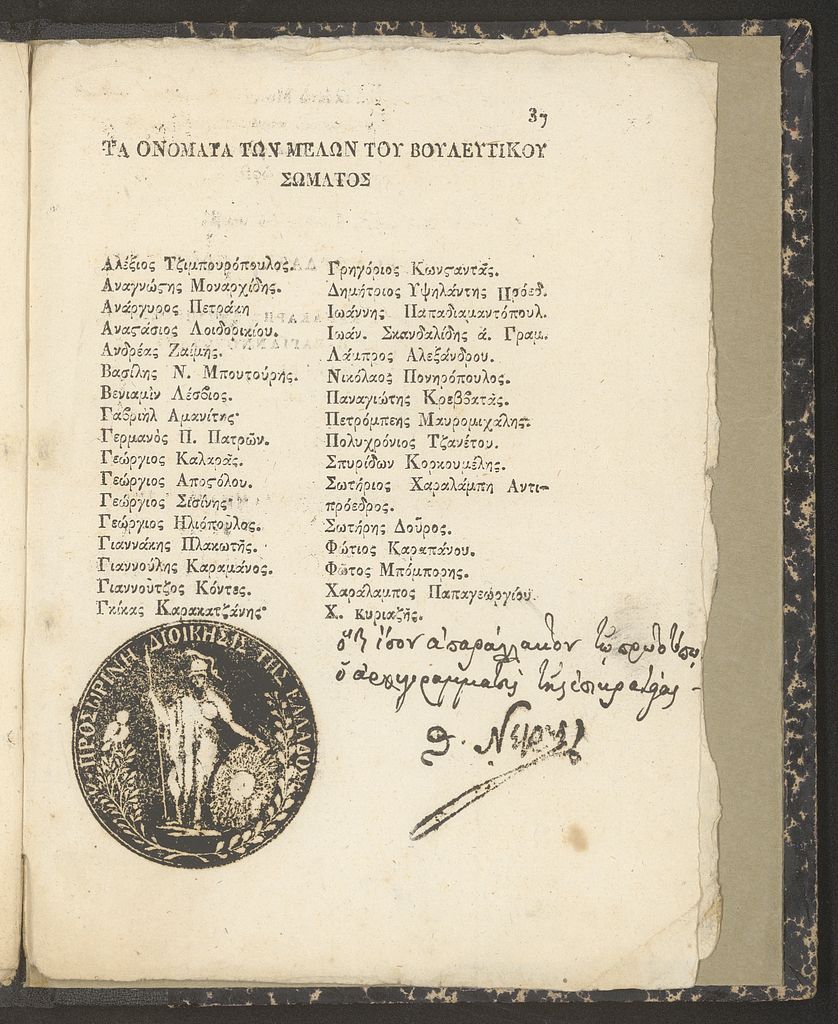 37
ΤΑ ΟΝΟΜΑΤΑ ΤΩΝ ΜΕΛΩΝ ΤΟΥ ΒΟΥΛΕΥΤΙΚΟΥ
ΣΩΜΑΤΟΣ
Αλέξιος Τζιμπουρόπουλος.
Αναγνώϛης Μοναρχίδης.
Ανάργυρος Πετράκη
Αναϛάσιος Λοιδορικίου.
Ανδρέας Ζαίμης.
Βασίλης Ν. Μπουτούρης.
Βενιαμὶν Λέσβιος.
Γαβριὴλ Αμανίτης
Γερμανὸς Π. Πατρῶν.
Γεώργιος Καλαρᾶς.
Γεώργιος Αποϛόλου.
Γεώργιος Σισίνης
Γεώργιος Ηλιόπουλος.
Γιαννάκης Πλακωτῆς.
Γιαννούλης Καραμάνος.
Γιαννοῦτζος Κόντες.
Γκίκας Καρακατζάνης
Γρηγόριος Κωνϛαντᾶς.
Δημήτριος Υψηλάντης Πρόεδ.
Ιωάννης Παπαδιαμαντόπουλ.
Ιωάν. Σκανδαλίδης ἀ. Γραμ.
Λάμπρος Αλεξάνδρου.
Νικόλαος Πονηρόπουλος.
Παναγιώτης Κρεββατᾶς.
Πετρόμπεης Μαυρομιχάλης.
Πολυχρόνιος Τζανέτου.
Σπυρίδων Κορκουμέλης.
Σωτήριος Χαραλάμπη Αντι-
πρόεδρος.
Σωτήρης Δοῦρος.
Φώτιος Καραπάνου.
Φῶτος Μπόμπορης.
Χαράλαμπος Παπαγεωργίου
Χ. κυριαζῆς.
ἴσον ἀπαράλλακτον τῷ πρωτοτύπῳ
ὁ ἀρχιγραμματεὺς τῆς ἐπικρατείας
Θ. Νέγρης
ΠΡΟΣΩΡΙΝΗ ΔΙΟΙΚΗΣΙΣ ΤΗΣ ΕΛΛΑΔΟΣ